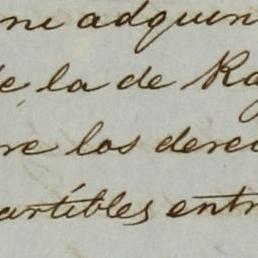 ni adquin
de la de Ra
re los derec
artibles entr